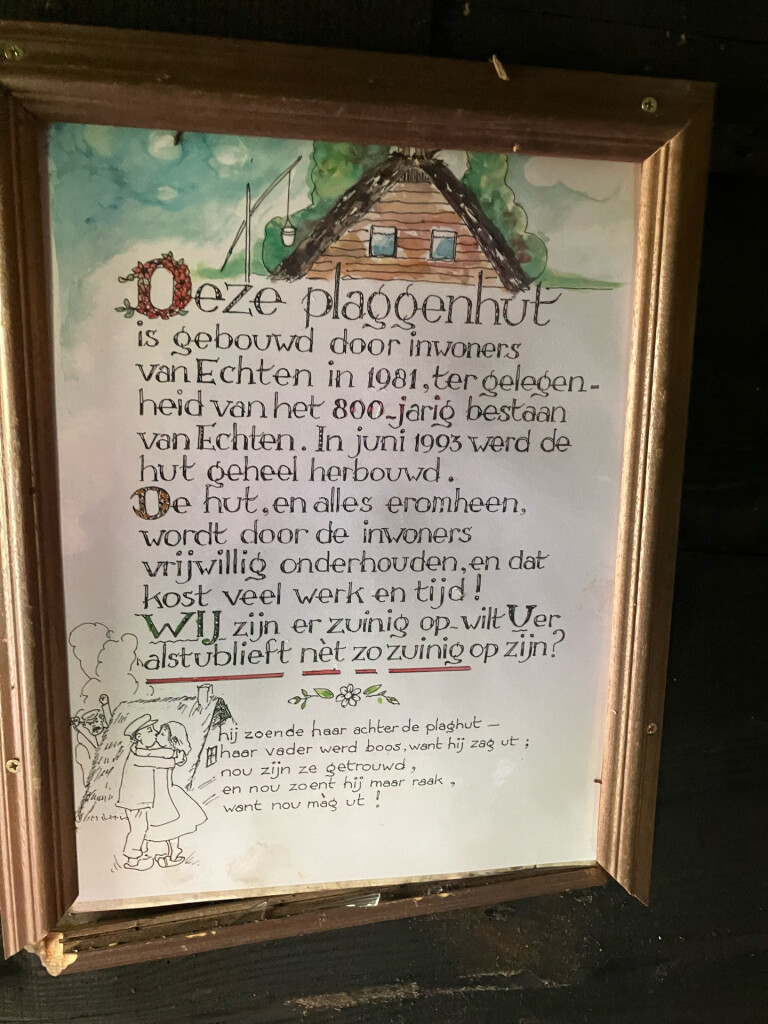 Deze plaggenhut
is gebouwd door inwoners
van Echten in 1981, ter gelegen-
heid van het 800-jarig bestaan
van Echten. In juni 1993 werd de
hut geheel herbouwd.
De hut, en alles eromheen,
wordt door de inwoners
vrijwillig onderhouden, en dat
kost veel werk en tijd!
WIJ zijn er zuinig op-wilt U er
alstublieft nèt zo zuinig op zijn?
hij zoende haar achter de plaghut —
haar vader werd boos, want hij zag ut ;
nou zijn ze getrouwd,
en nou zoent hij maar raak,
want nou màg ut !